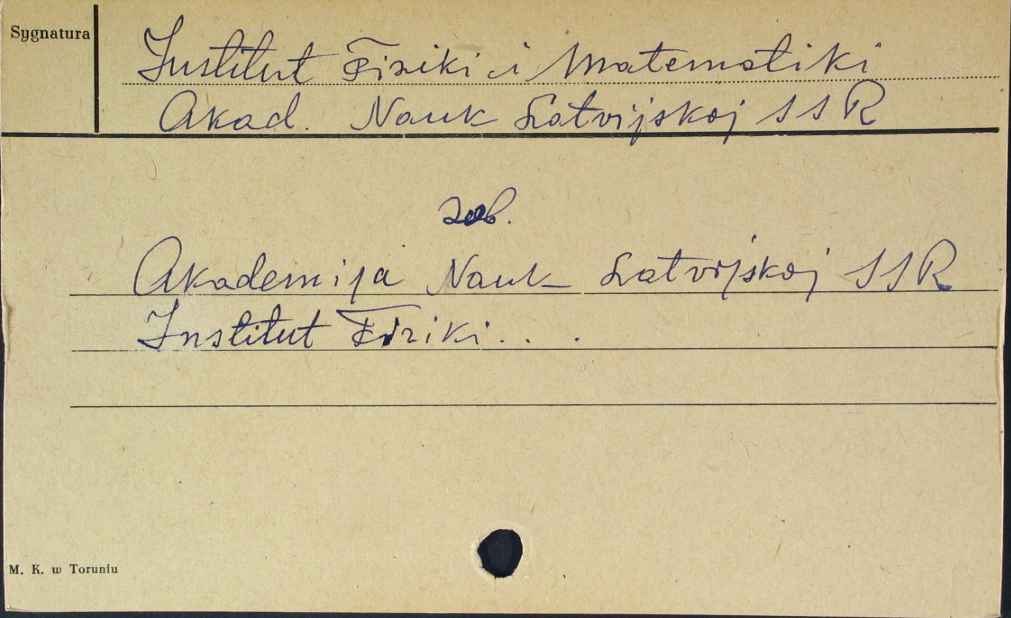 Sygnatura
Institut Fiziki i Matematiki
Akad. Nauk Latvijskoj SSR
zob.
Akademija Nauk Latvijskoj SSR
Institut Fiziki . . .
M. K. w Toruniu